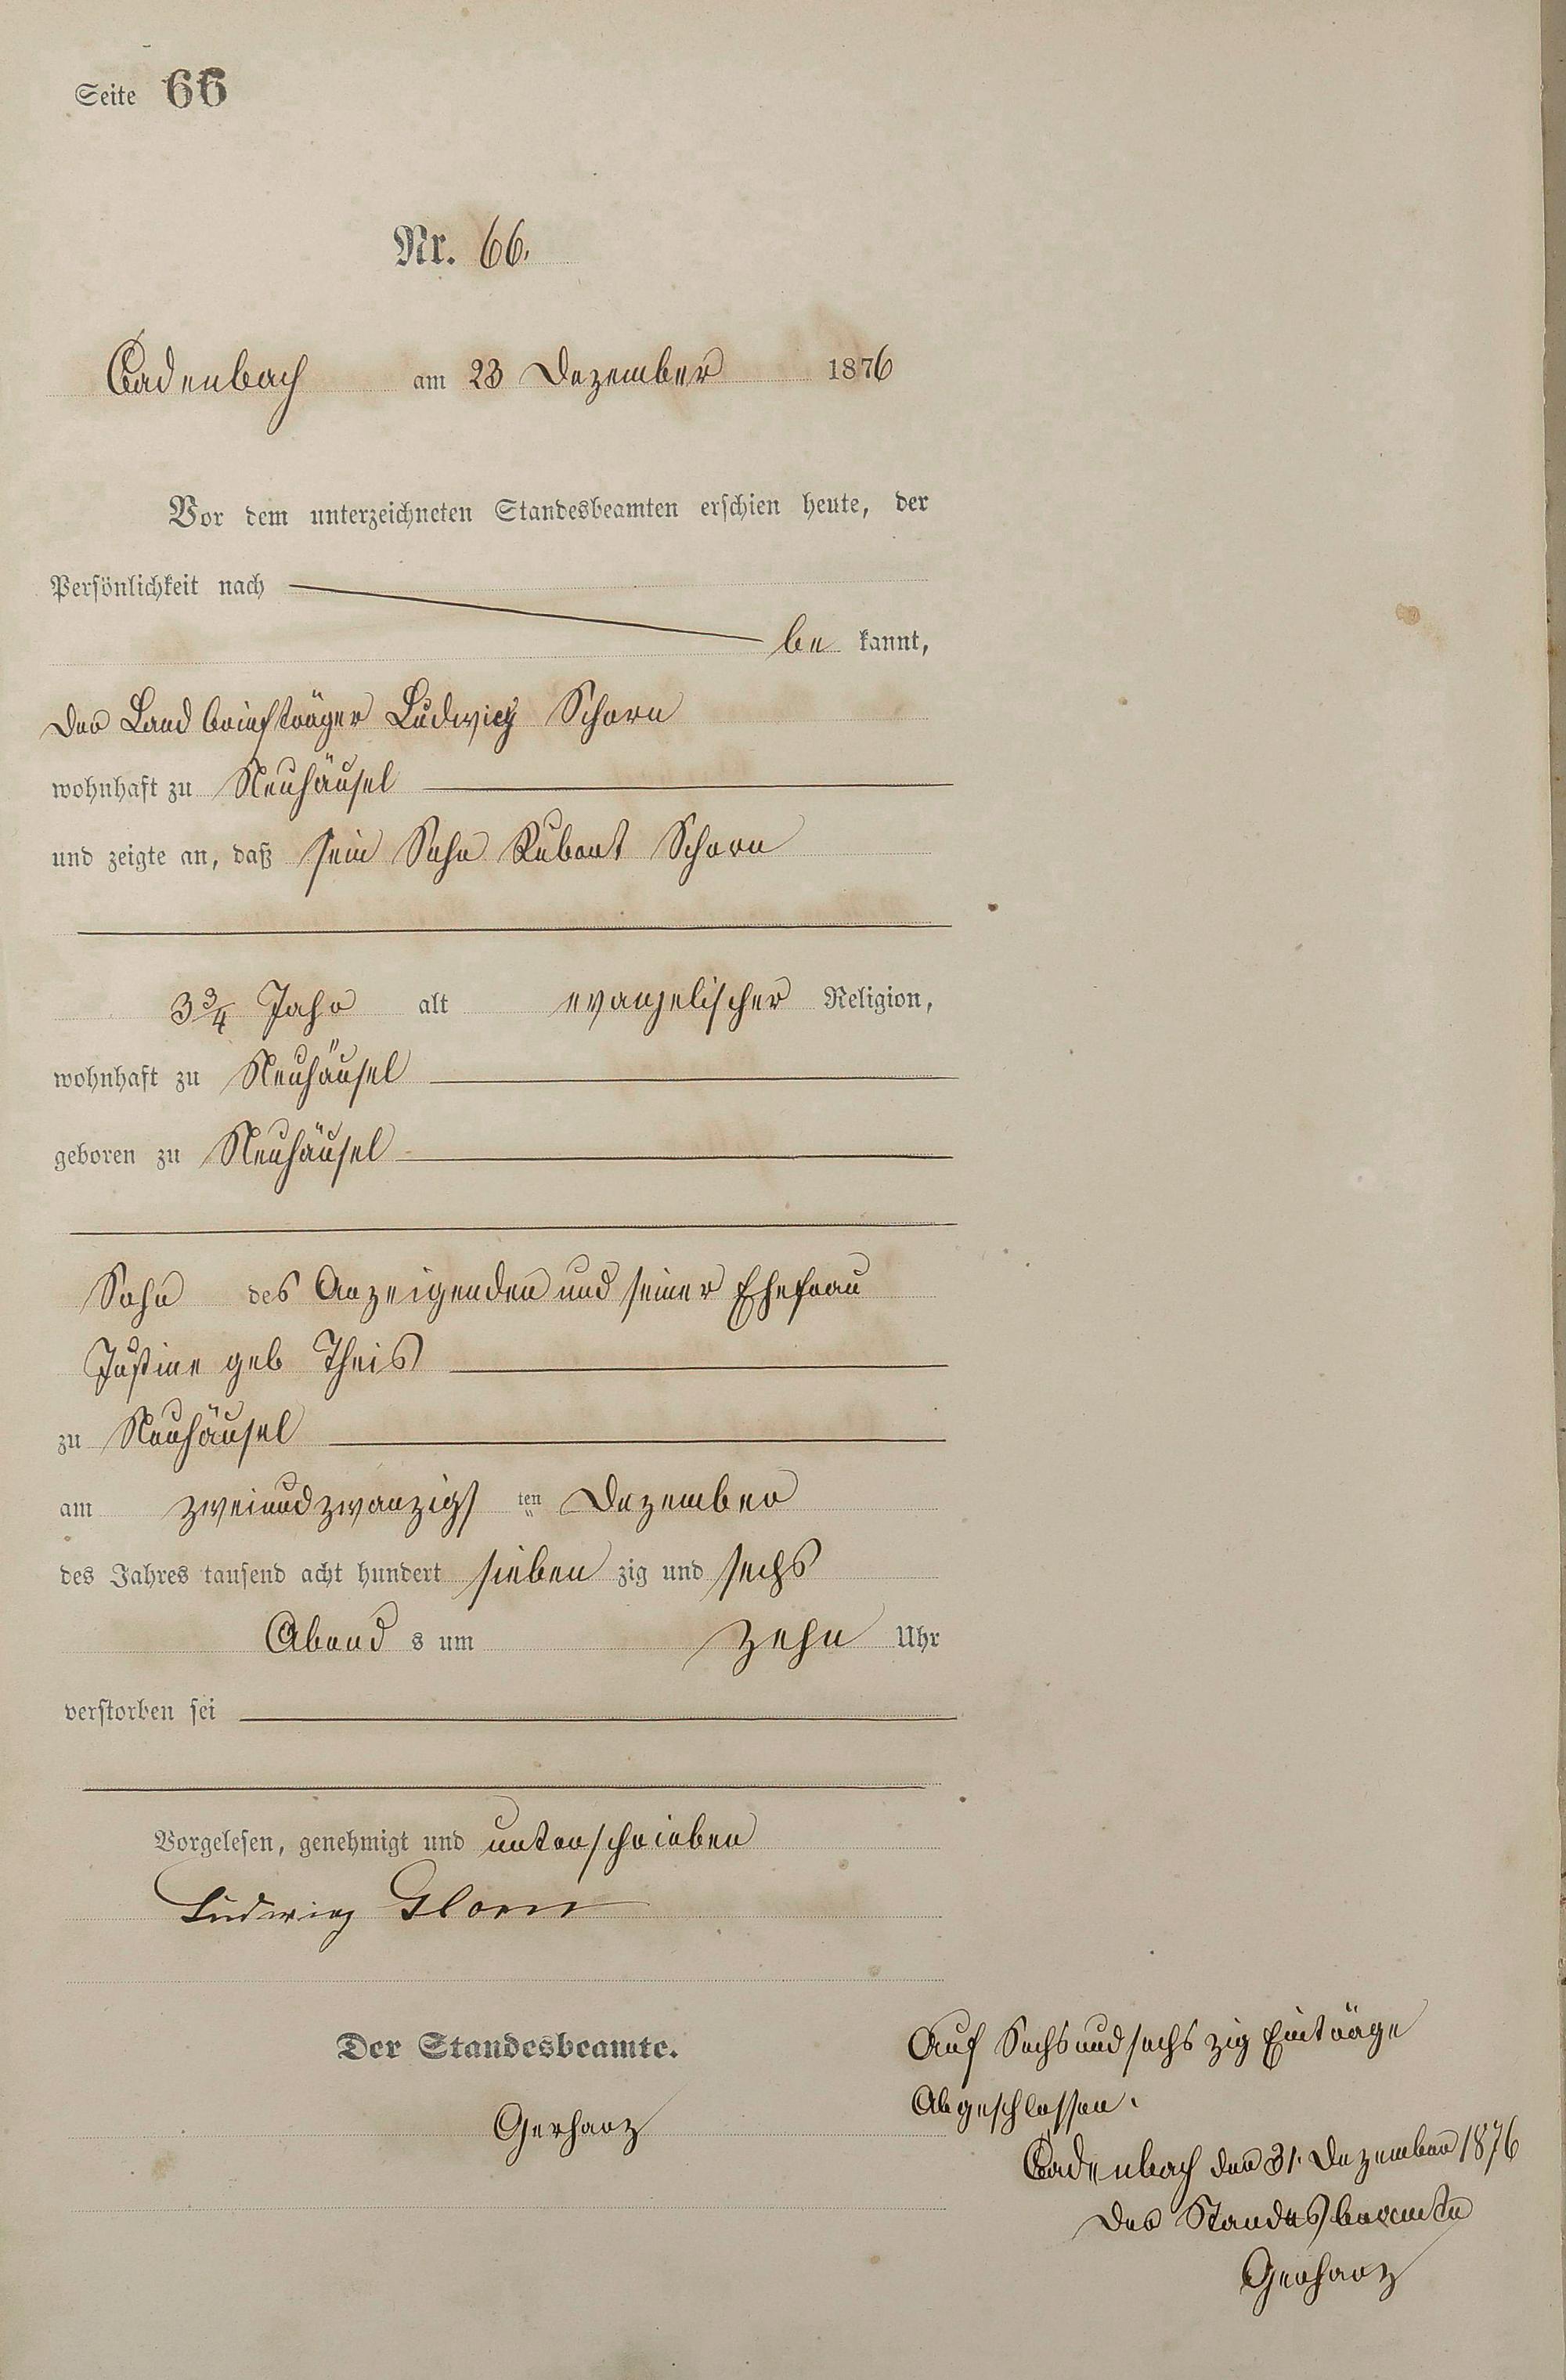 Seite 66
Nr. 66.
Cadenbach am 23 Dezember 1876
Vor dem unterzeichneten Standesbeamten erschien heute, der
Persönlichkeit nach
be kannt,
der Landbriefträger Ludwig Schorn
wohnhaft zu Neuhäusel
und zeigte an, daß sein Sohn Schorn
3 3/4 Jahr alt evangelischer Religion,
wohnhaft zu Neuhäusel
geboren zu Neuhäusel
Sohn des Anzeigenden und seiner Ehefrau
Justine geb Theis
zu Neuhäusel
am zweiundzwanzigs ten Dezember
des Jahres tausend acht hundert sieben zig und sechs
Abend s um zehn Uhr
verstorben sei
Vorgelesen, genehmigt und unterschrieben
Ludwig
Der Standesbeamte.
Gerharz
Auf Sechsundsechszig Einträge
Abgeschlossen.
Cadenbach den 31. Dezember 1876
Der Standesbeamte
Gerharz